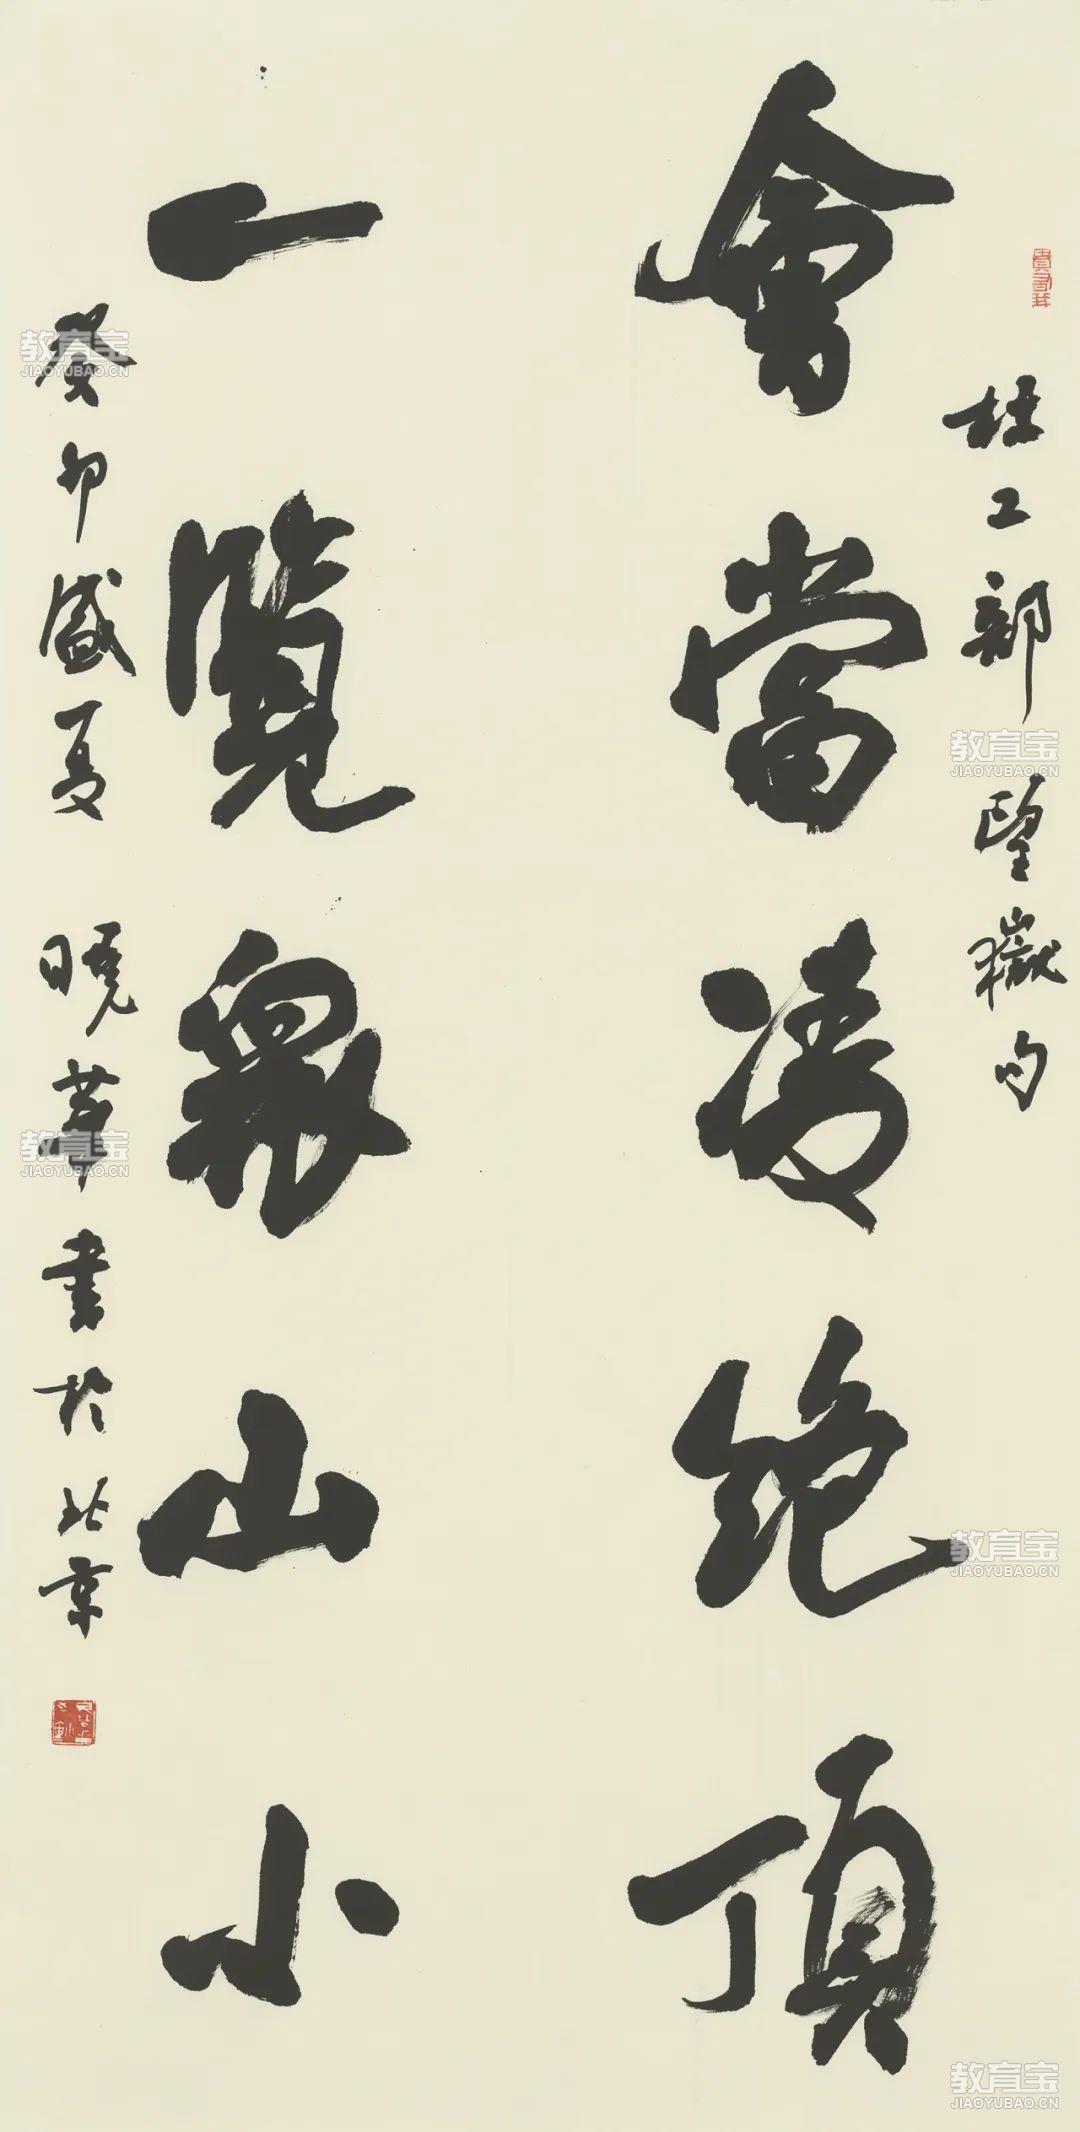 杜工部望嶽句
會當凌絕頂
一覽衆山小
癸卯盛夏 曉華書於北京
教育宝
JIAOYUBAO.CN
教育宝
JIAOYUBAO.CN
教育宝
JIAOYUBAO.CN
教育宝
JIAOYUBAO.CN
教育宝
JIAOYUBAO.CN